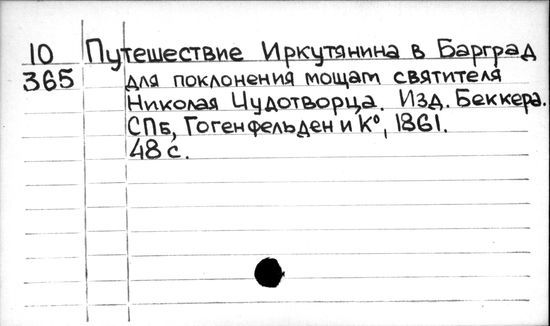 10 Путешествие Иркутянина в Барград
365 для поклонения мощам святителя
Николая Чудотворца. Изд. Беккера.
СПб, Гогенфельден и К°, 1861.
48 с.